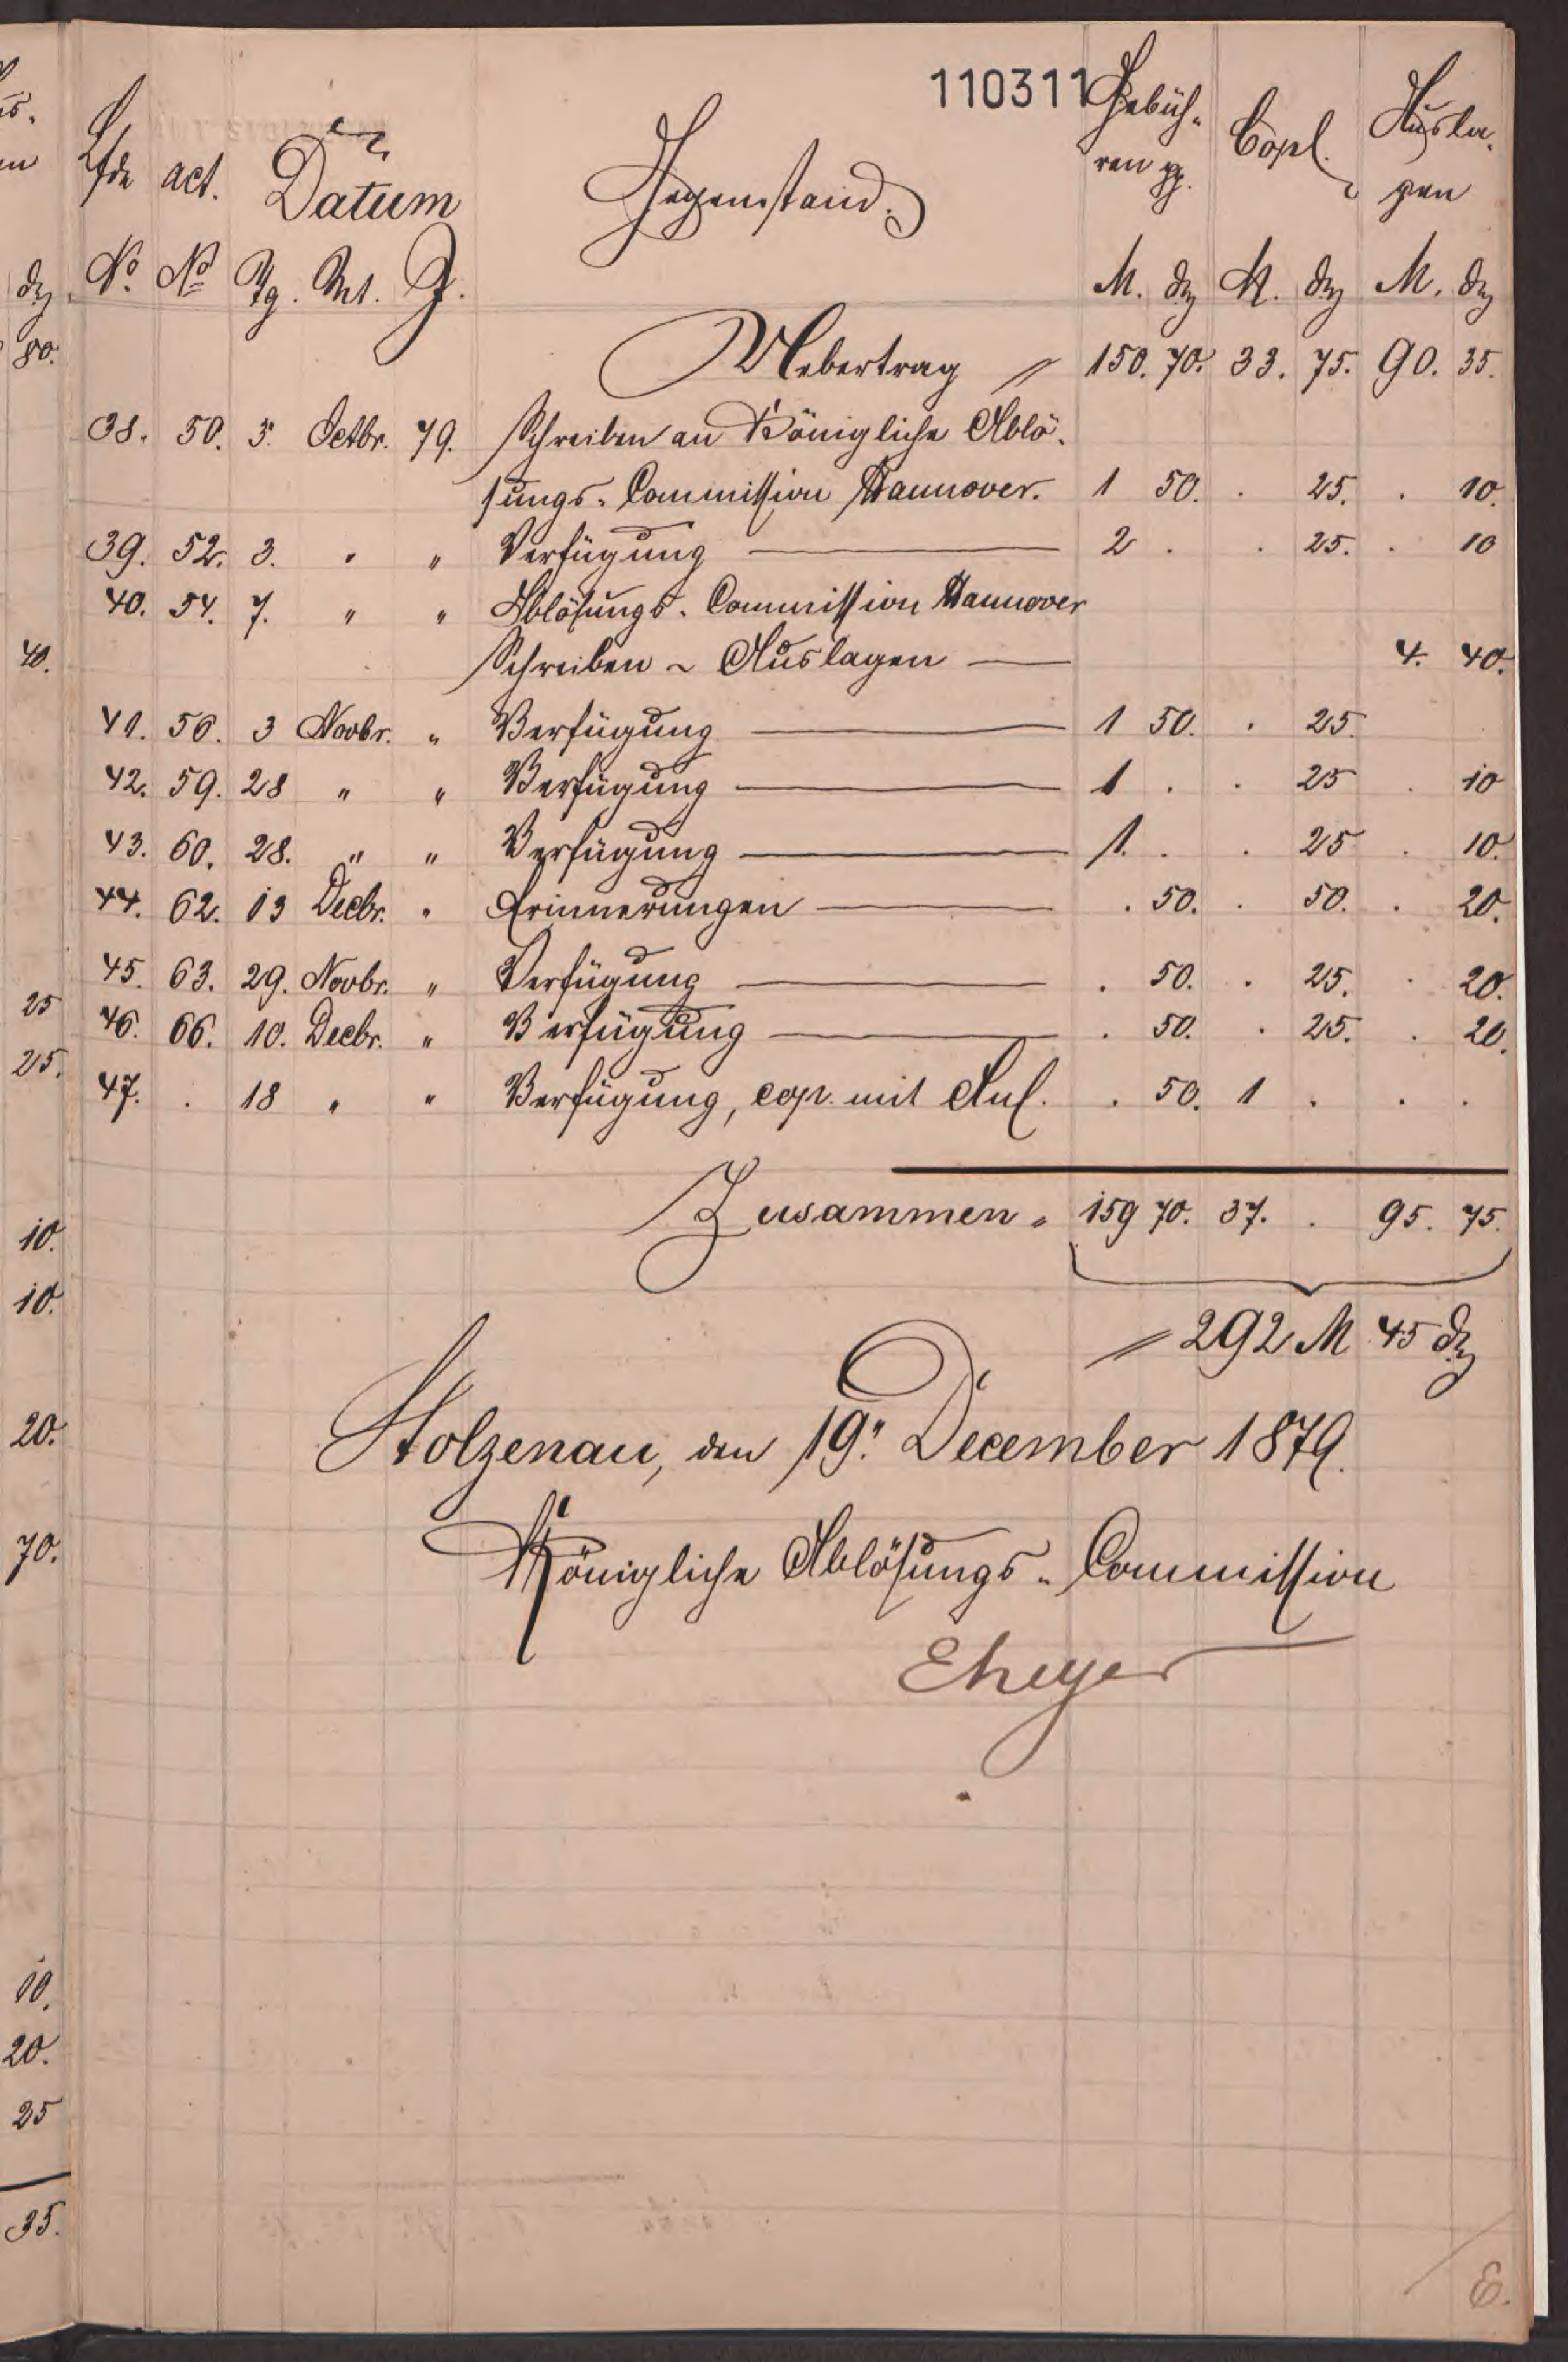 110311
Lfde act. Datum Gegenstand. Gebüh- Copl. Ausla-
ren pp. gen
No. No Tg. Mt. J. M. d M. d M. d
Uebertrag = 150. 70. 33. 75. 90. 35.
38. 50. 3. Octbr. 79. Schreiben an Königliche Ablö-
sungs-Commission Hannover. 1 50. . 25. . 10.
39. 52. 3. " " Verfügung — 2 . . 25. . 10
40. 54. 7. " " Ablösungs-Commission Hannover
Schreiben ~ Auslagen — 4. 40.
41. 56. 3 Novbr. " Verfügung — 1 50. . 25.
42. 59. 28 " " Verfügung — 1 . . 25 . 10
43. 60. 28. " " Verfügung — 1. . . 25 . 10.
44. 62. 13 Decbr. " Erinnerungen — . 50. . 50. . 20.
45. 63. 29. Novbr. " Verfügung — . 50. . 25. . 20.
46. 66. 10. Decbr. " Verfügung — . 50. . 25. . 20.
47. . 18 " " Verfügung, cop. mit Anl. . 50. 1 . . .
Zusammen = 159 70. 37. . 95. 75.
= 292 M 45 d
Stolzenau, den 19." December 1879.
Königliche Ablösungs-Commission
Eheyer
E.
80.
40.
25
25.
10.
10.
20.
70.
10.
20.
25
35.